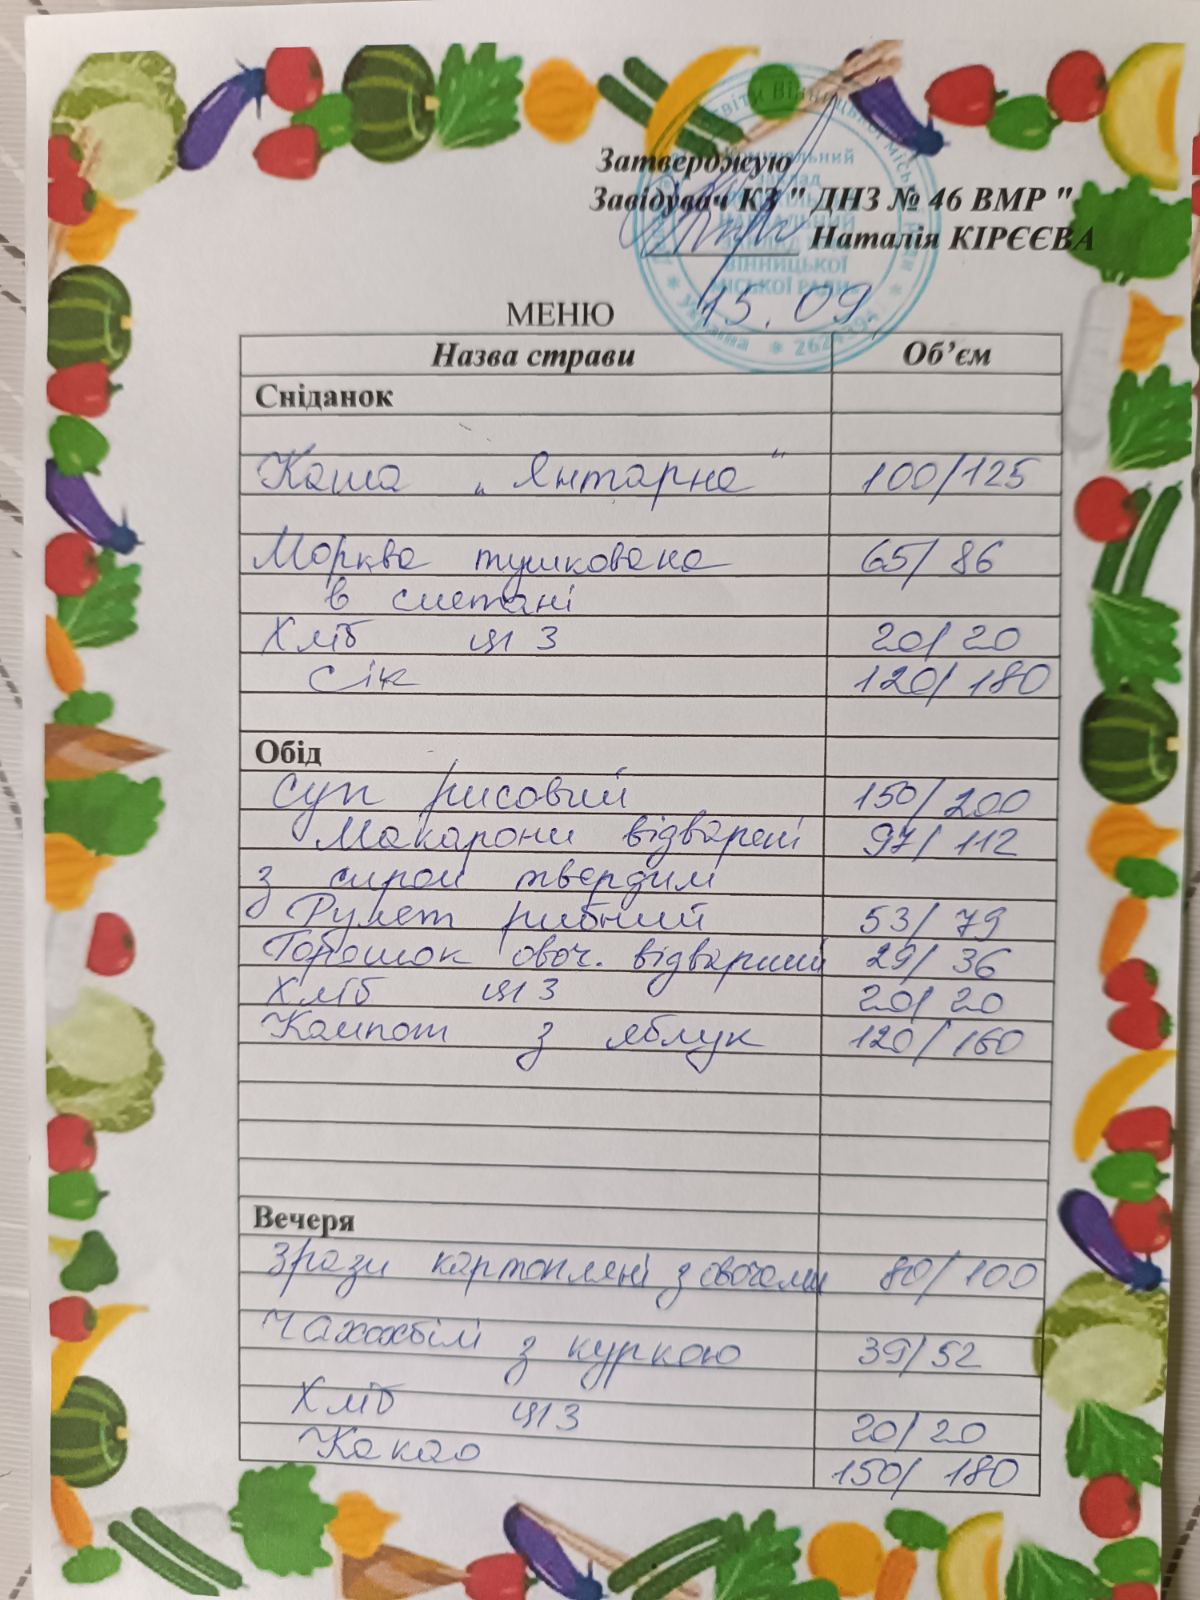 Затверджую
Завідувач КЗ " ДНЗ № 46 ВМР "
Наталія КІРЄЄВА
15.09
МЕНЮ
Назва страви Об’єм
Сніданок
Каша „ Янтарна “ 100/125
Морква тушкована 65/ 86
в сметані
Хліб ц/з 20/ 20
Сік 120/ 180
Обід
Суп рисовий 150/ 200
Макарони відварені 97/ 112
з сиром твердим
Рулет рибний 53/ 79
Горошок овоч. відварний 29/ 36
Хліб ц/з 20/ 20
Компот з яблук 120/ 160
Вечеря
Зрази картопляні з овочами 80/ 100
Чахохбілі з куркою 39/ 52
Хліб ц/з 20/ 20
Какао 150/ 180